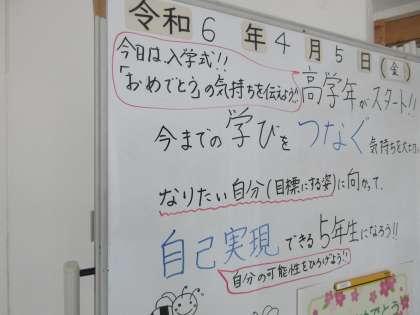 令和6年4月5日(金)
今日は、入学式!!
「おめでとう」の気持ちを伝えよう!!
高学年がスタート!!
今までの学びをつなぐ気持ちを大
なりたい自分(目標にする姿)に向かって、
自己実現できる5年生になろう!!
自分の可能性をひろげよう!!